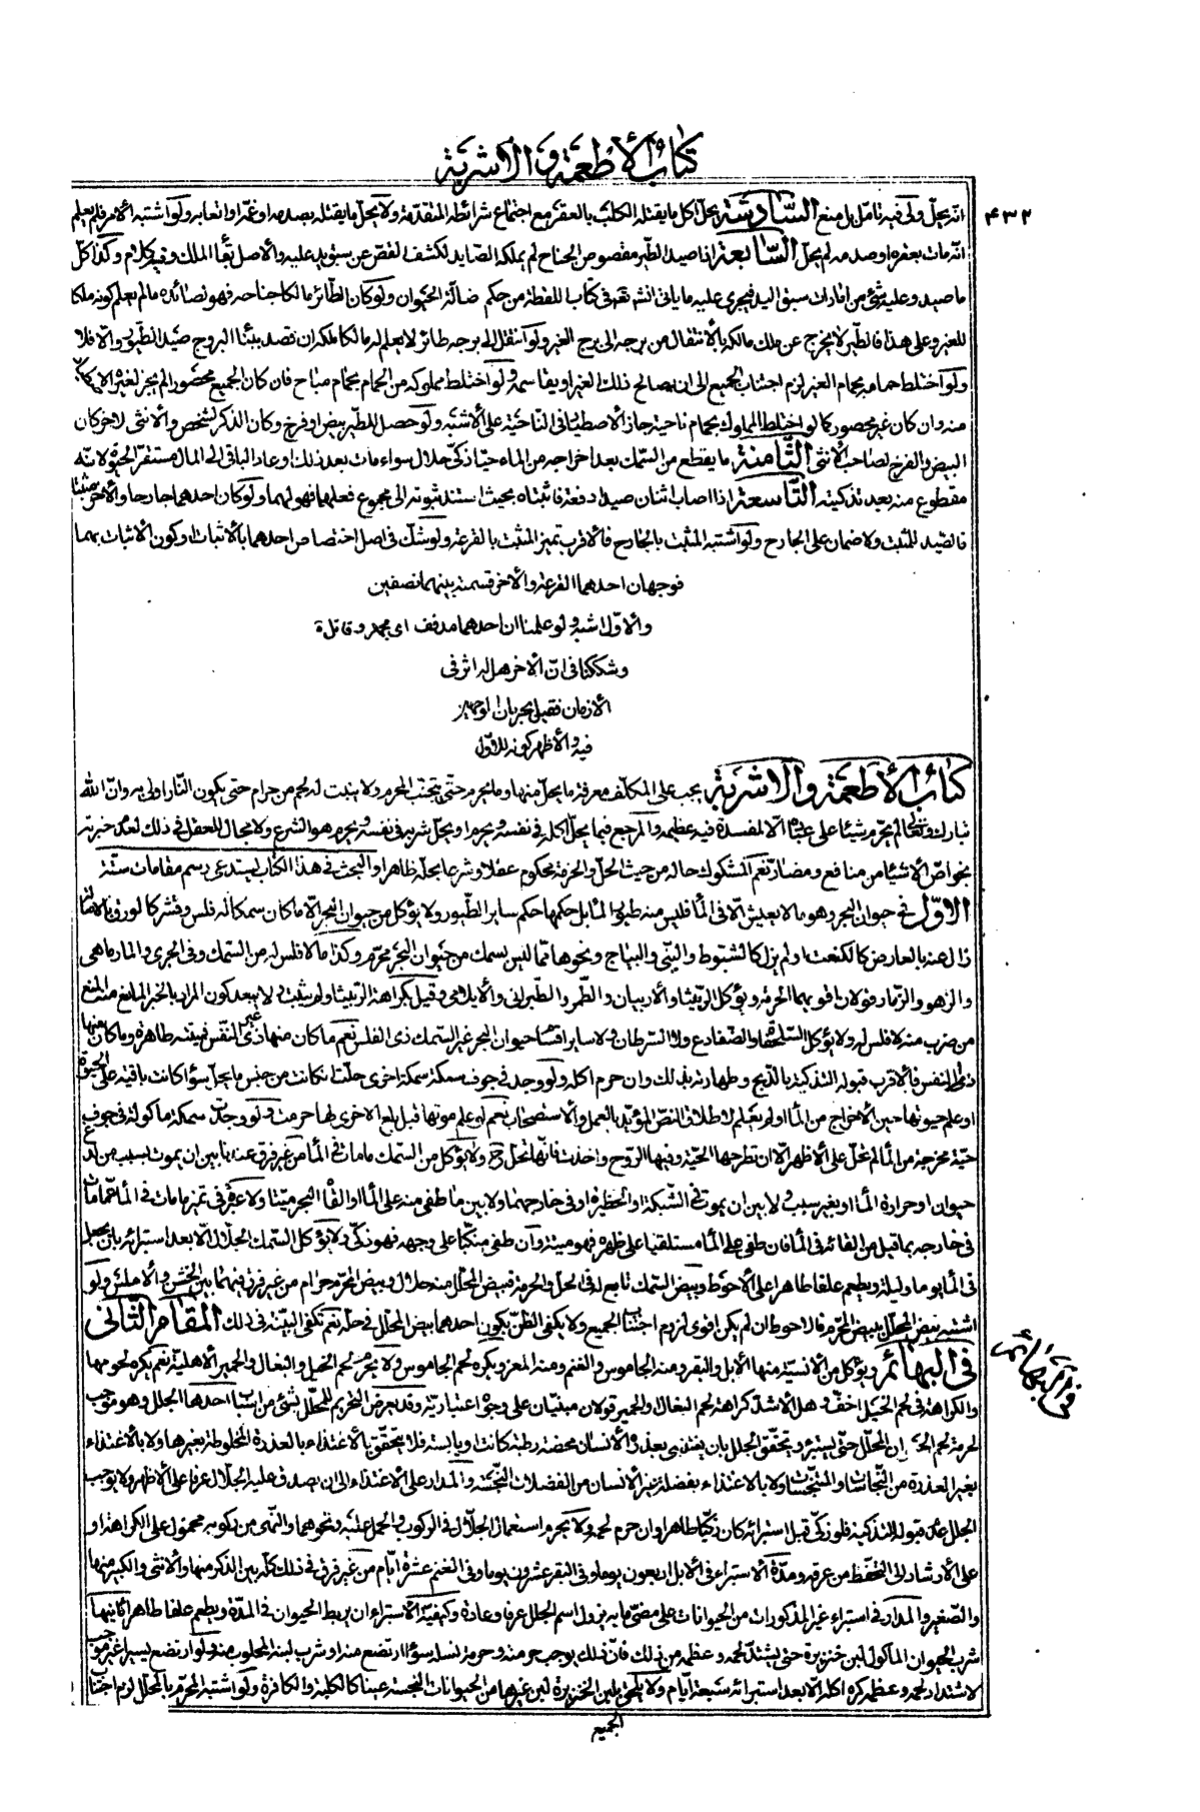 كتاب الأطعمة والاشربة
٤٣٢
انّه يحلّ وفيه تامّل بل منع السّادسة يحلّ اكل ما يقتله الكلب بالعقر مع اجتماع شرائطه المتقدّمة ولا يحلّ ما يقتله بصدمه او غمّه او اتعابه ولو اشتبه الأمر فلم يعلم
انّه مات بعقره او صدمه لم يحلّ السّابعة اذا صيد الطّير مقصوص الجناح لم يملكه الصّايد لكشف القصّ عن سبق يد عليه والاصل بقاء الملك وفيه كلام وكذا كل
ما صيد وعليه شئ من امارات سبق اليد فيجرى عليه ما ياتى انش تعالى فى كتاب اللقطة من حكم ضالّة الحيوان ولو كان الطّائر مالكا جناحه فهو لصائده ما لم يعلم كونه ملكا
للغير وعلى هذا فالطّير لا يخرج عن ملك مالكه بالأنتقال من برجه الى برج الغير ولو انتقل الى برجه طائر لا يعلم له مالكا ملكه ان قصد ببناء البروج صيد الطّيور والّا فلا
ولو اختلط حمامه بحمام الغير لزم اجتناب الجميع الى ان يصالح ذلك الغير او يقاسمه ولو اختلط مملوكه من الحمام بحمام مباح فان كان الجميع محصورا لم يجز لغيره الاصطياد
منه وان كان غير محصور كما لو اختلط المملوك بحمام ناحية جاز الأصطياد فى النّاحية على الأشبه ولو حصل للطّير بيض او فرخ وكان الذّكر لشخص والأنثى لاخر كان
البيض والفرخ لصاحب الأنثى الثّامنة ما يقطع من السّمك بعد اخراجه من الماء حيّا ذكىّ حلال سواء مات بعد ذلك او عاد الباقى الى الماء مستقرّ الحيوة لانّه
مقطوع منه بعد تذكيته التّاسعة اذا اصاب اثنان صيدا دفعة فاثبتاه بحيث استند ثبوته الى مجموع فعلهما فهو لهما ولو كان احدهما جارحا والأخر مثبتا
فالصّيد للمثبت ولا ضمان على الجارح ولو اشتبه المثبت بالجارح فالأقرب تميّز المثبت بالقرعة ولو شكّ فى اصل اختصاص احدهما بالأثبات او كون الاثبات بهما
فوجهان احدهما القرعة والأخر قسمته بينهما نصفين
والاوّل اشبه ولو علمنا ان احدهما مدفّف اى مجهز وقاتله
وشككنا فى انّ الأخر هل له اثر فى
الأزمان فقيل بجريان الوجهين
فيه والأظهر كونه للاوّل
كتاب الأطعمة والاشربة يجب على المكلّف معرفة ما يحلّ منها وما يحرم حتّى يتجنّب المحرم ولا ينبت له لحم من حرام حتى يكون النّار اولى به وانّ الله
تبارك وتعالى لم يحرّم شيئا على عباده الّا لمفسدة فيه عظيمة والمرجع فيما يحلّ اكله فى نفسه ويحرم او يحلّ شربه فى نفسه ويحرم هو الشرع ولا مجال للعقل فى ذلك لعدم خبرته
بخواصّ الأشياء من منافع ومضار نعم المشكوك حاله من حيث الحلّ والحرمة محكوم عقلا وشرعا بحلّه ظاهرا والبحث فى هذا الكتاب يستدعى رسم مقامات ستّة
الاوّل فى حيوان البحر وهو ما لا يعيش الّا فى الماء فليس منه طيور الماء بل حكمها حكم ساير الطّيور ولا يؤكل من حيوان البحر الّا ما كان سمكا له فلس وقشر كالورق
زال عنه بالعارض كالكنعت او لم يزل كالشبوط والبنّى والبياح ونحوها فما ليس بسمك من حيوان البحر محرّم وكذا ما لا فلس له من السّمك وفى الجرى والمارماهى
والزهو والزّمار قولان اقويهما الحرمة ويؤكل الرّبيثا والأربيان والطّمر والطّبرانى والأبلامى وقيل بكراهة الرّبيثا ولم يثبت ولا يبعد كون المراد بالخبر المانع منه المنع
من ضرب منه لا فلس له ولا يؤكل السّلحفاة والضّفادع ولا السّرطان ولا ساير اقسام حيوان البحر غير السّمك ذى الفلس نعم ما كان منها غير ذى النّفس فميتته طاهرة وما كان منها
ذى النفس فالأقرب قبوله التذكية بالذّبح وطهارته بذلك وان حرم اكله ولو وجد فى جوف سمكة سمكة اخرى حلّت ان كانت من جنس ما يحلّ سواء كانت باقية على الحيوة
او علم حيوتها حين الأخراج من الماء او لم يعلم لاطلاق النصّ المؤيّد بالعمل والأستصحاب نعم لو علم موتها قبل بلع الاخرى لها حرمت ولو وجدت سمكة ماكولة فى جوف
حيّة مخرجة من الماء لم تحلّ على الأظهر الّا ان تطرحها الحيّة وفيها الرّوح واخذت فانّها تحلّ ح ولا يؤكل من السّمك ما مات فى الماء من غير فرق عندنا بين ان يموت بسبب من
حيوان او حرارة الماء او بغير سبب ولا بين ان يموت فى الشّبكة او الحظيرة او فى خارجهما ولا بين ما طفى منه على الماء او القاه البحر ميّتا ولا عبرة فى تميّز ما مات فى الماء عمّا مات
فى خارجه بما قيل من القائه فى الماء فان طفى على الماء مستلقيا على ظهره فهو ميتة وان طفى منكبّا على وجهه فهو ذكىّ ولا يؤكل السّمك الجلّال الّا بعد استبرائه بان يجعل
فى الماء يوما وليلة ويطعم علفا طاهرا على الأحوط وبيض السّمك تابع له فى الحلّ والحرمة فبيض المحلّل منه حلال وبيض المحرّم حرام من غير فرق فيهما بين الخشن والأملس ولو
اشتبه بيض المحلّل ببيض المحرّم فالاحوط ان لم يكن اقوى لزوم اجتناب الجميع ولا يكفى الظّنّ بكون احدهما بيض المحلّل فى حلّه نعم تكفى البيّنة فى ذلك المقام الثّانى
فى البهائم ويؤكل من الأنسيّة منها الأبل والبقر ومنه الجاموس والغنم ومنه المعز ويكره لحم الجاموس ولا يحرم لحم الخيل والبغال والحمير الأهلية نعم يكره لحومها
فى البهائم
والكراهة فى لحم الخيل اخفّ وهل الأشدّ كراهة لحم البغال او الحمير قولان مبنيّان على وجوه اعتبارية وقد يعرض التحريم للمحلّل بشئ من اسباب احدها الجلل وهو موجب
لحرمة لحم الحيوان المحلّل حتّى يستبرء ويتحقّق الجلل بان يغتذى بعذرة الأنسان محضة رطبة كانت او يابسة فلا يتحقّق بالأغتذاء بالعذرة المخلوطة بغيرها ولا بالأغتذاء
بغير العذرة من النّجاسات والمتنجّسات ولا بالاغتذاء بفضلة غير الأنسان من الفضلات النّجسة والمدار على الأغتذاء الى ان يصدق عليه الجلّال عرفا على الأظهر ولا يوجب
الجلل عدم قبوله للتذكية فلو ذكّى قبل استبرائه كان ذكيّا طاهرا وان حرم لحمه ولا يحرم استعمال الجلّال فى الركوب والحمل عليه ونحوهما والنّهى عن ركوبه محمول على الكراهة او
على الأرشاد الى التّحفّظ من عرقه ومدّة الأستبراء فى الأبل اربعون يوما وفى البقر عشرون يوما وفى الغنم عشرة ايّام من غير فرق فى ذلك كلّه بين الذكر منها والأنثى والكبير منها
والصّغير والمدار فى استبراء غير المذكورات من الحيوانات على مضىّ ما به يزول اسم الجلل عرفا وعادة وكيفيّة الأستبراء ان يربط الحيوان فى المدّة ويطعم علفا طاهرا ثانيها
شرب الحيوان المأكول لبن خنزيرة حتى يشتدّ لحمه وعظمه من ذلك فانّ ذلك يوجب حرمته وحرمة نسله سواء ارتضع منه او شرب لبنه المحلوب منه ولو ارتضع يسيرا غير موجب
لاشتداد لحمه وعظمه كره اكله الّا بعد استبرائه سبعة ايّام ولا يلحق بلبن الخنزيرة لبن غيرها من الحيوانات النّجسة عينا كالكلبة والكافرة ولو اشتبه المحرّم بالمحلّل لزم اجتناب
الجميع